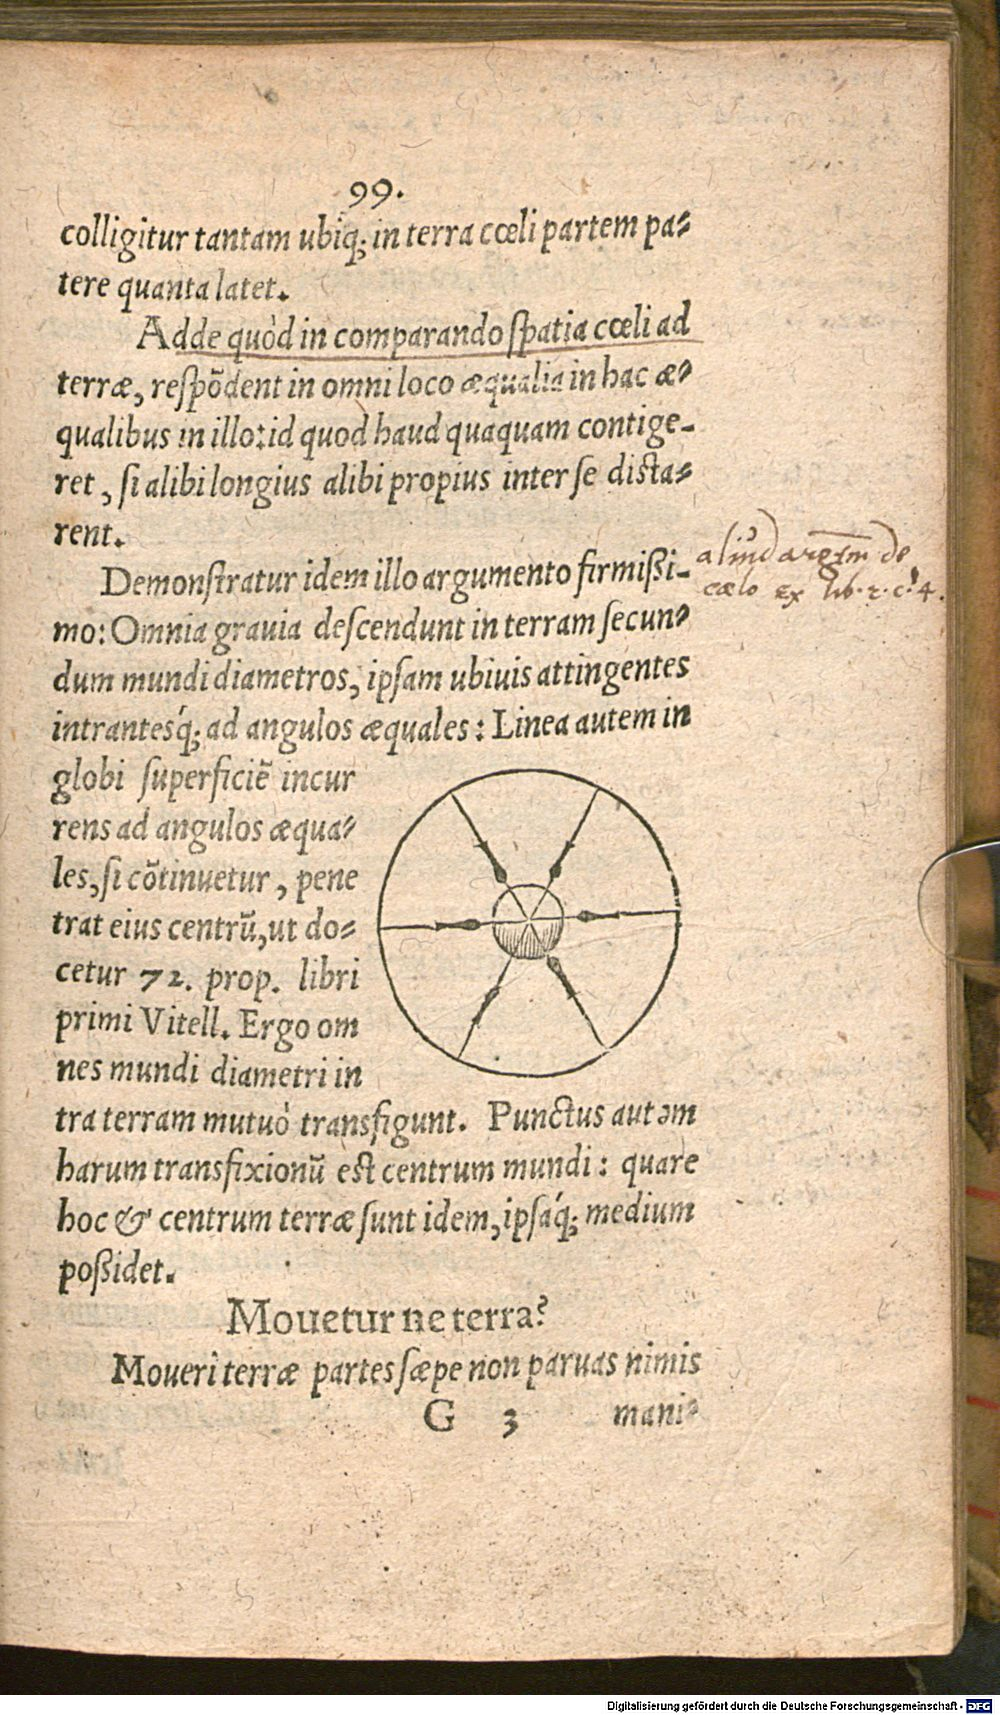 99.
colligitur tantam ubiq; in terra cœli partem pa-
tere quanta latet.
Adde quòd in comparando spatia cœli ad
terræ, respõdent in omni loco æqualia in hac æ-
qualibus in illo: id quod haud quaquam contige-
ret, si alibi longius alibi propius inter se dista-
rent.
Demonstratur idem illo argumento firmißi-
mo: Omnia gravia descendunt in terram secun-
dum mundi diametros, ipsam ubivis attingentes
intrantesq́; ad angulos æquales: Linea autem in
globi superficiẽ incur
rens ad angulos æqua-
les, si cõtinuetur, pene
trat eius centrũ, ut do-
cetur 72. prop. libri
primi Vitell. Ergo om
nes mundi diametri in
tra terram mutuò transfigunt. Punctus autem
harum transfixionũ est centrum mundi: quare
hoc & centrum terræ sunt idem, ipsáq; medium
poßidet.
Movetur ne terra?
Moveri terræ partes sæpe non parvas nimis
G 3 mani-
aliud argm de
cælo ex lib. 2. c. 4.
Digitalisierung gefördert durch die Deutsche Forschungsgemeinschaft - DFG